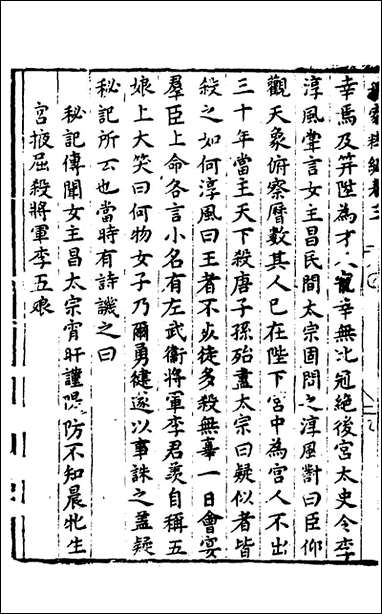 幸焉及笄陞為才人寵幸無比冠絕後宮太史令李
淳風嘗言女主昌民間太宗固問之淳風對曰臣仰
觀天象俯察曆數其人已在陛下宮中為宮人不出
三十年當主天下殺唐子孫殆盡太宗曰疑似者皆
殺之如何淳風曰王者不死徒多殺無辜一日會宴
羣臣上命各言小名有左武衛將軍李君羨自稱五
娘上大笑曰何物女子乃爾勇健遂以事誅之蓋疑
秘記所云也當時有詩譏之曰
秘記傳聞女主昌太宗宵旰謹隄防不知晨牝生
宮掖屈殺將軍李五娘